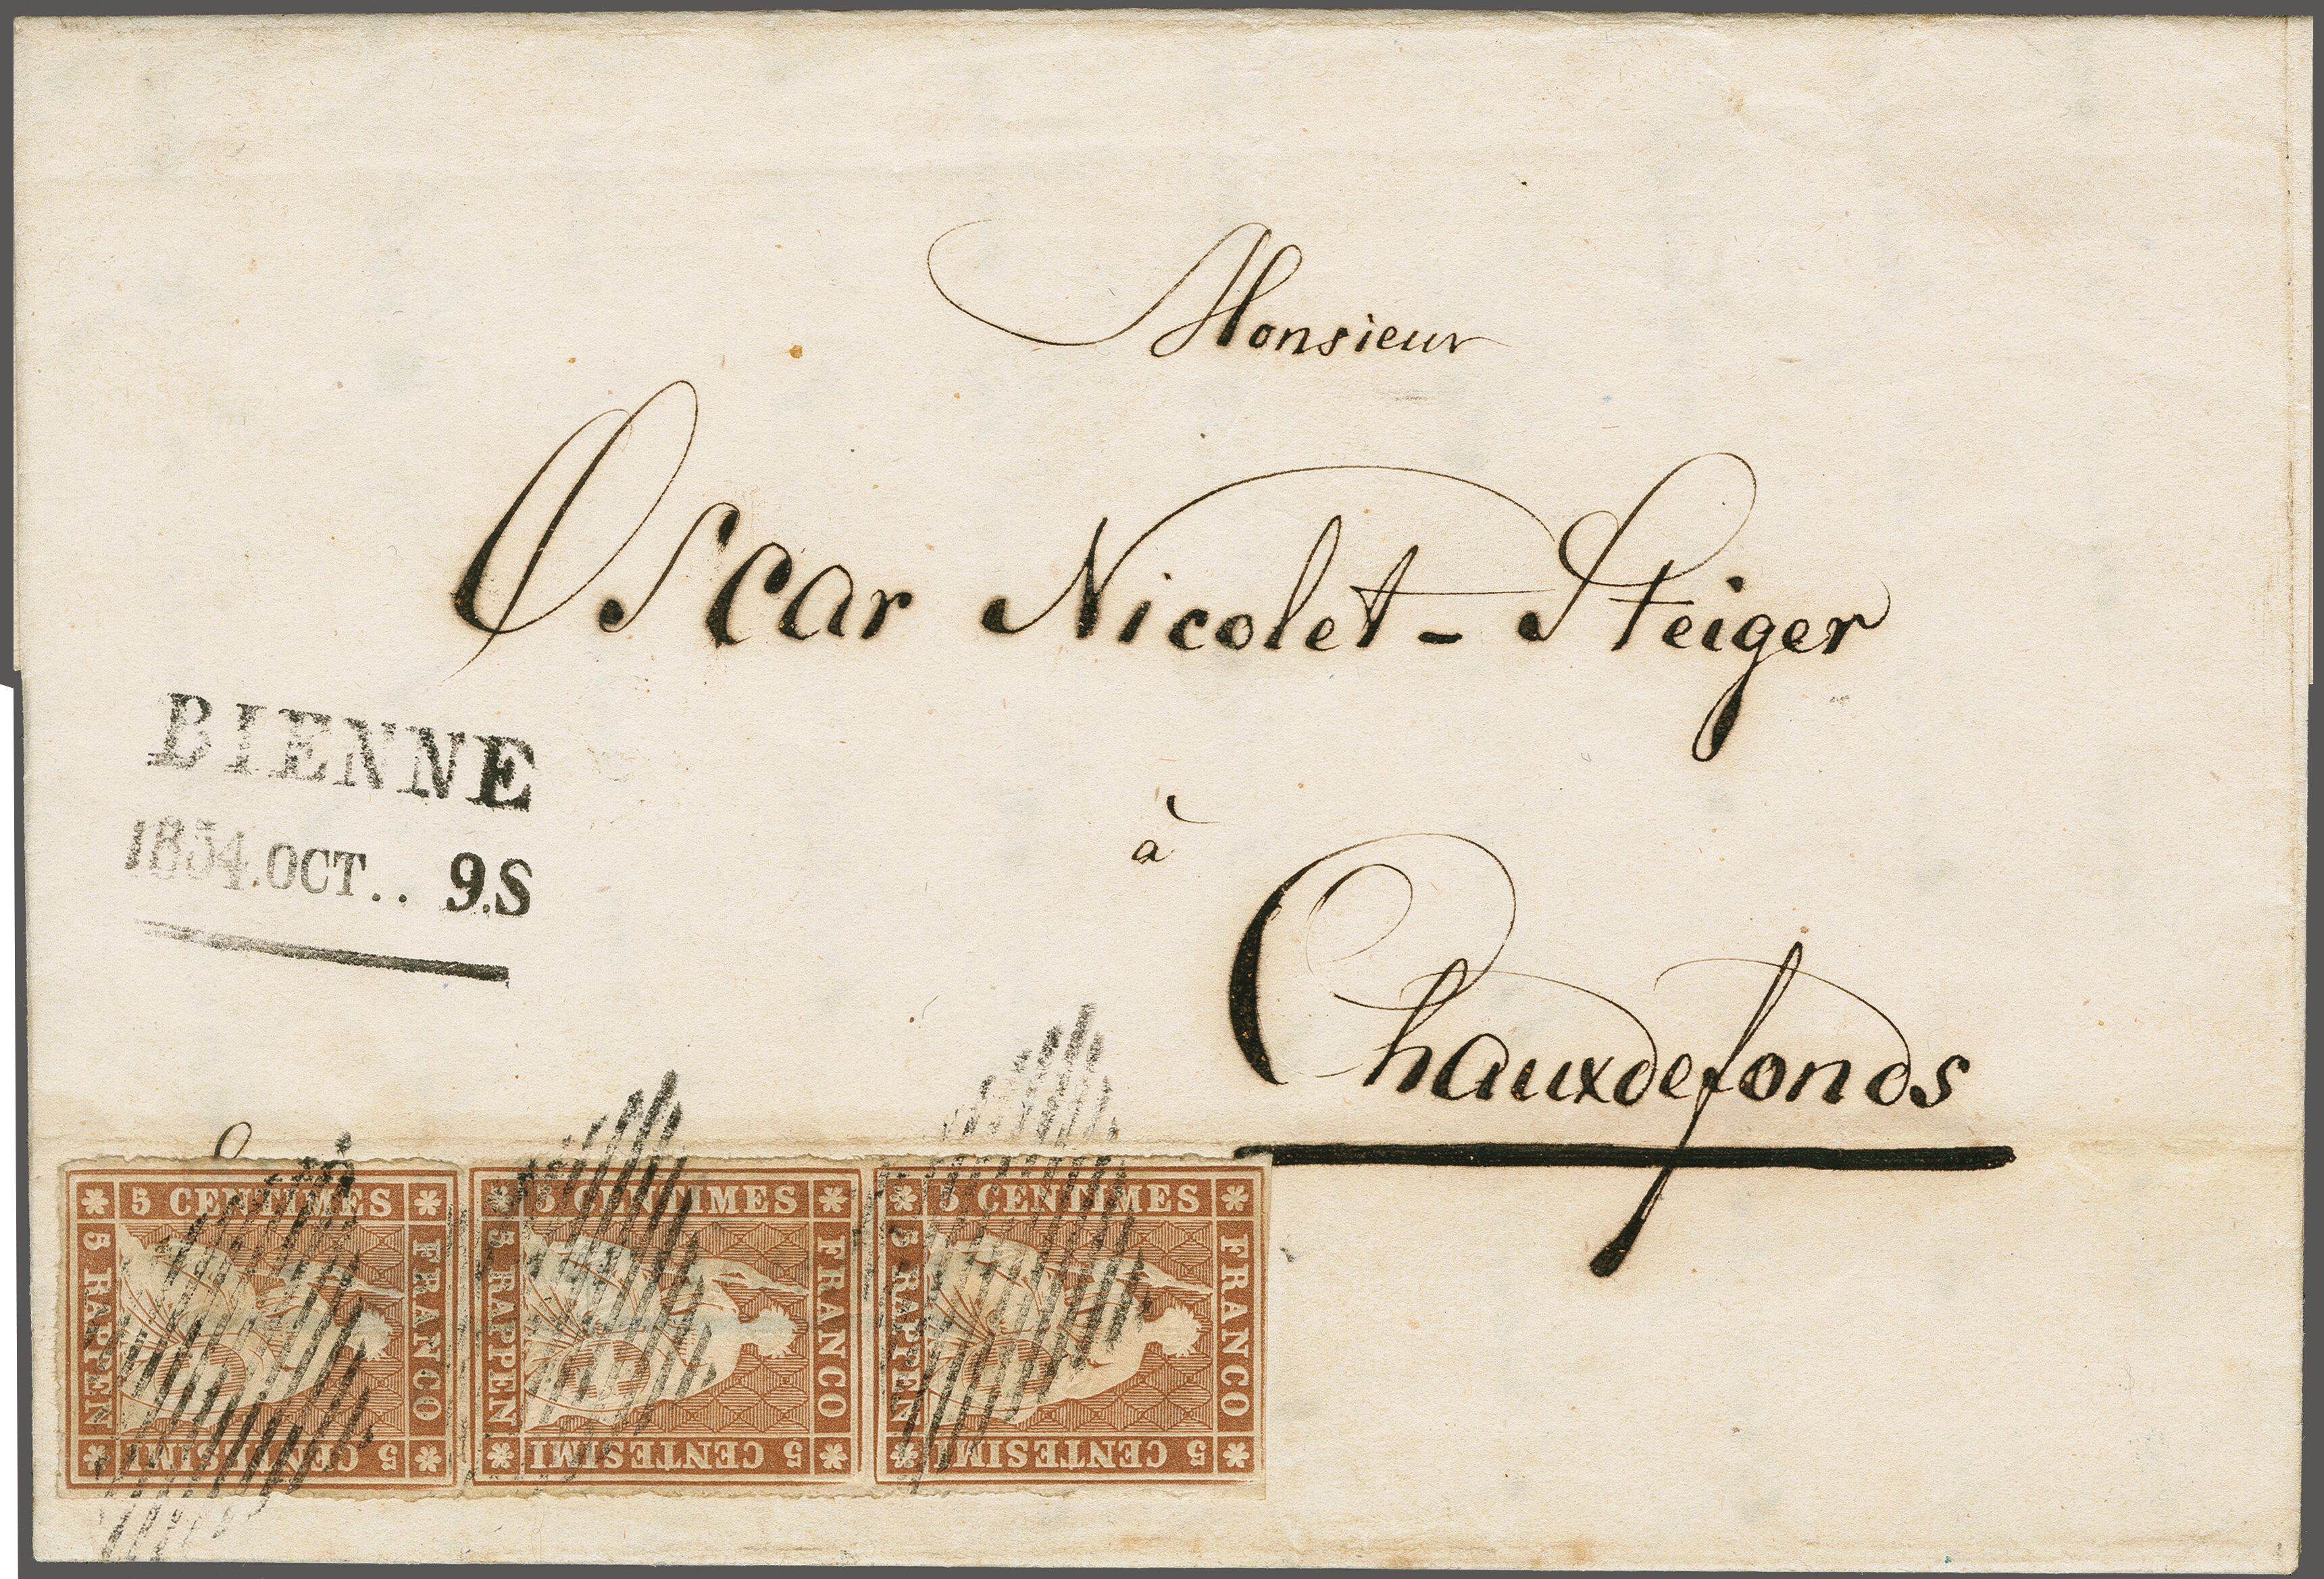 Monsieur
Oscar Nicolet-Steiger
à
Chauxdefonds
BIENNE
1854.OCT.. 9.S
5 CENTIMES
FRANCO
5 CENTESIMI
5 RAPPEN
5 CENTIMES
FRANCO
5 CENTESIMI
5 RAPPEN
5 CENTIMES
FRANCO
5 CENTESIMI
5 RAPPEN